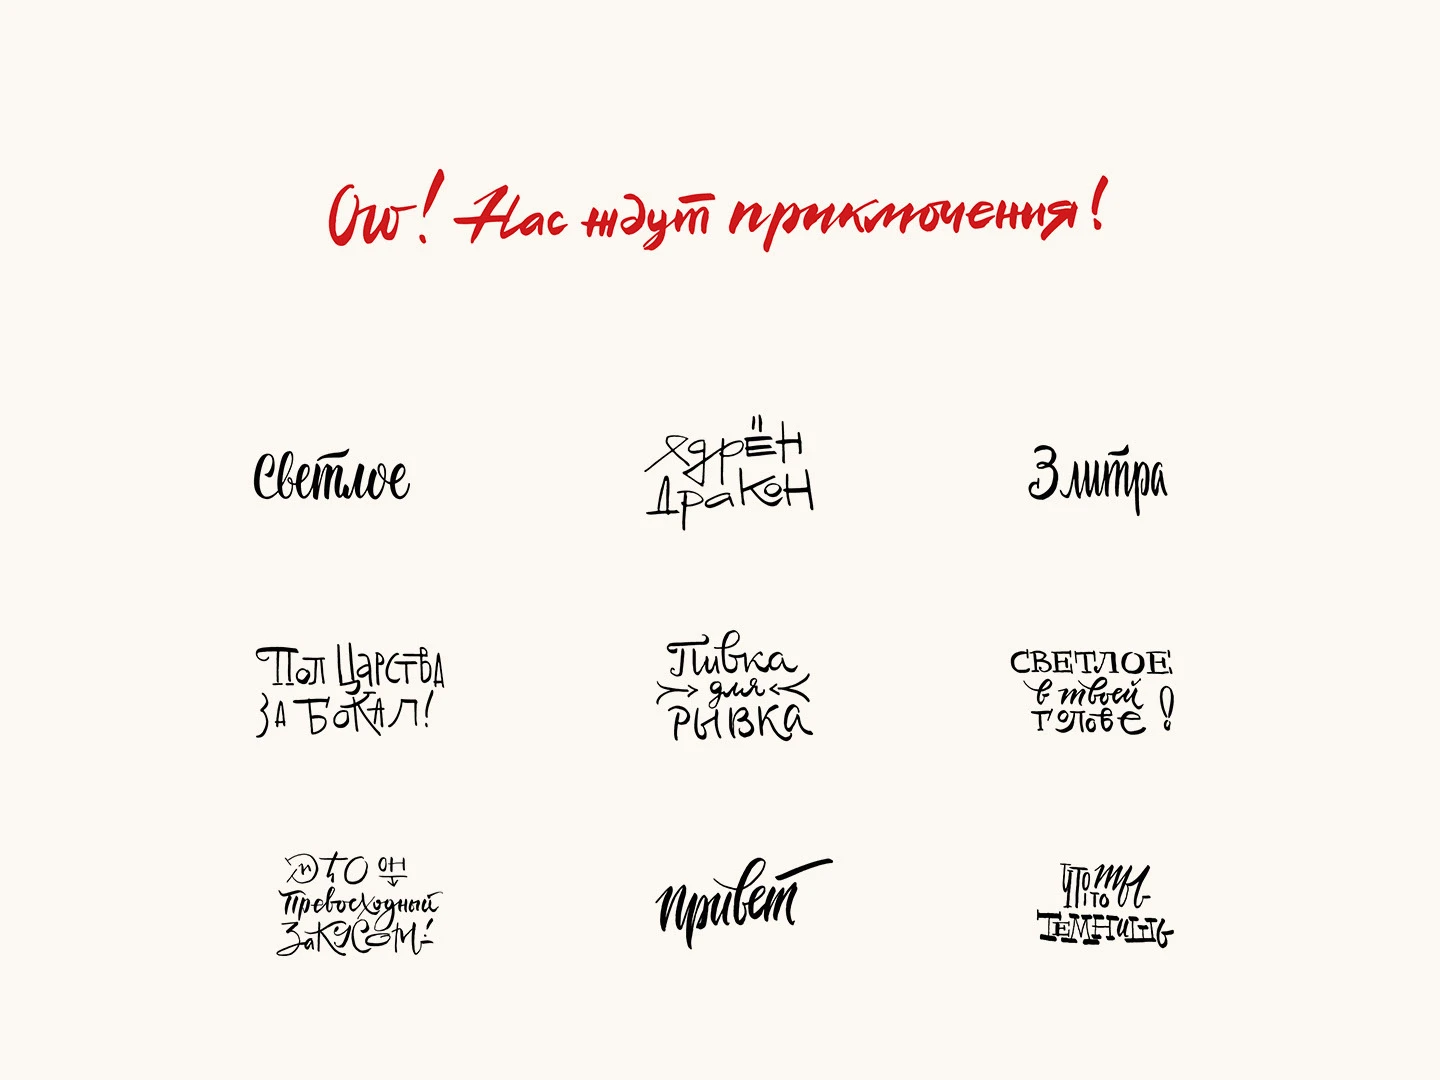 Ого! Нас ждут приключения!
Светлое
Ядрён
Дракон
3 литра
Пол Царства
за Бокал!
Пивка
для
рывка
СВЕТЛОЕ
в твоей
голове!
Это он
Превосходный
Закусом!
привет
Что-то ты
темнишь